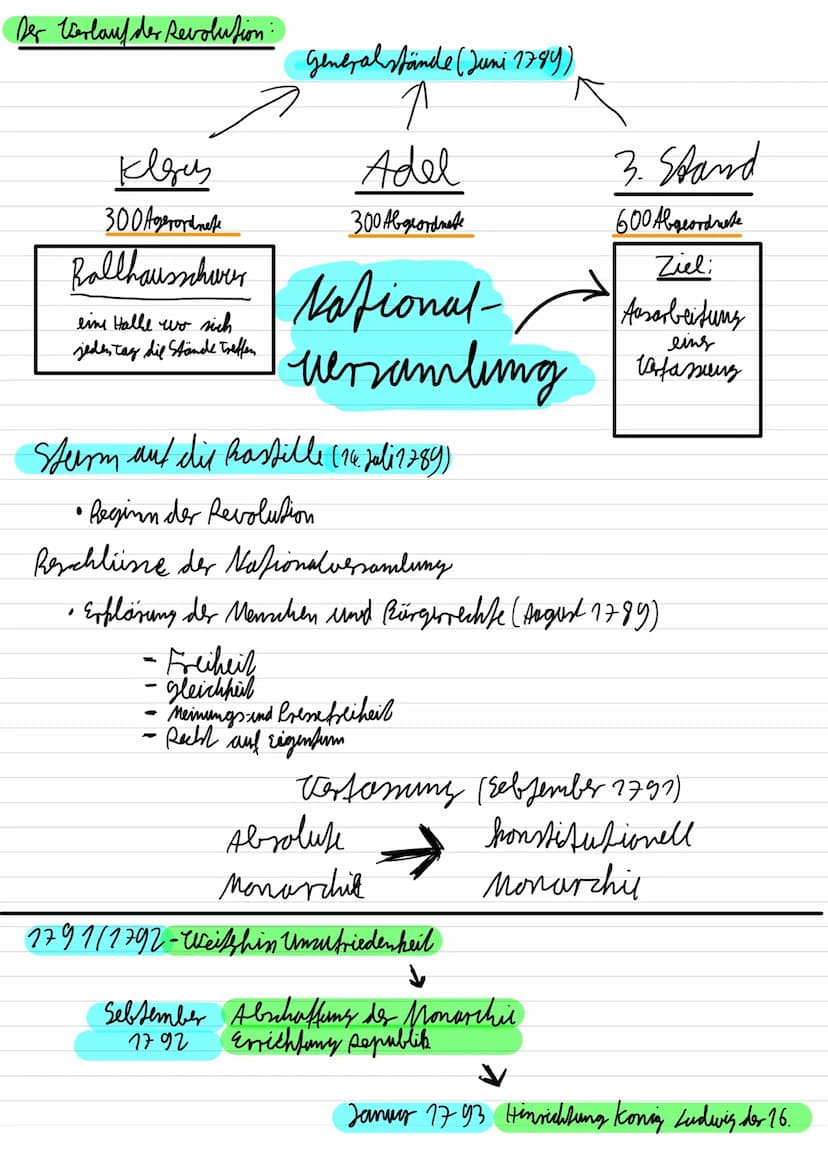 Der Verlauf der Revolution:
Generalstände (Juni 1789)
Klerus
Adel
3. Stand
300 Agerordnete
300 Abgeordnete
600 Abgeordnete
Ballhausschwur
eine Halle wo sich
jeden Tag die Stände treffen
National-
versamlung
Ziel:
Ausarbeitung
einer
Verfassung
Sturm auf die Bastille (14. Juli 1789)
• Beginn der Revolution
Beschlüsse der Nationalversamlung
• Erklärung der Menschen und Bürgerrechte (August 1789)
- Freiheit
- gleichheit
- Meinungs-und Pressefreiheit
- Recht auf Eigentum
Verfassung (Sebtember 1791)
Absolute
Monarchie
konstitutionell
Monarchie
1791/1792 - Weiterhin Unzufriedenheit
Sebtember
1792
Abschaffung der Monarchie
Errichtung Republik
Januar 1793
Hinrichtung König Ludwig der 16.